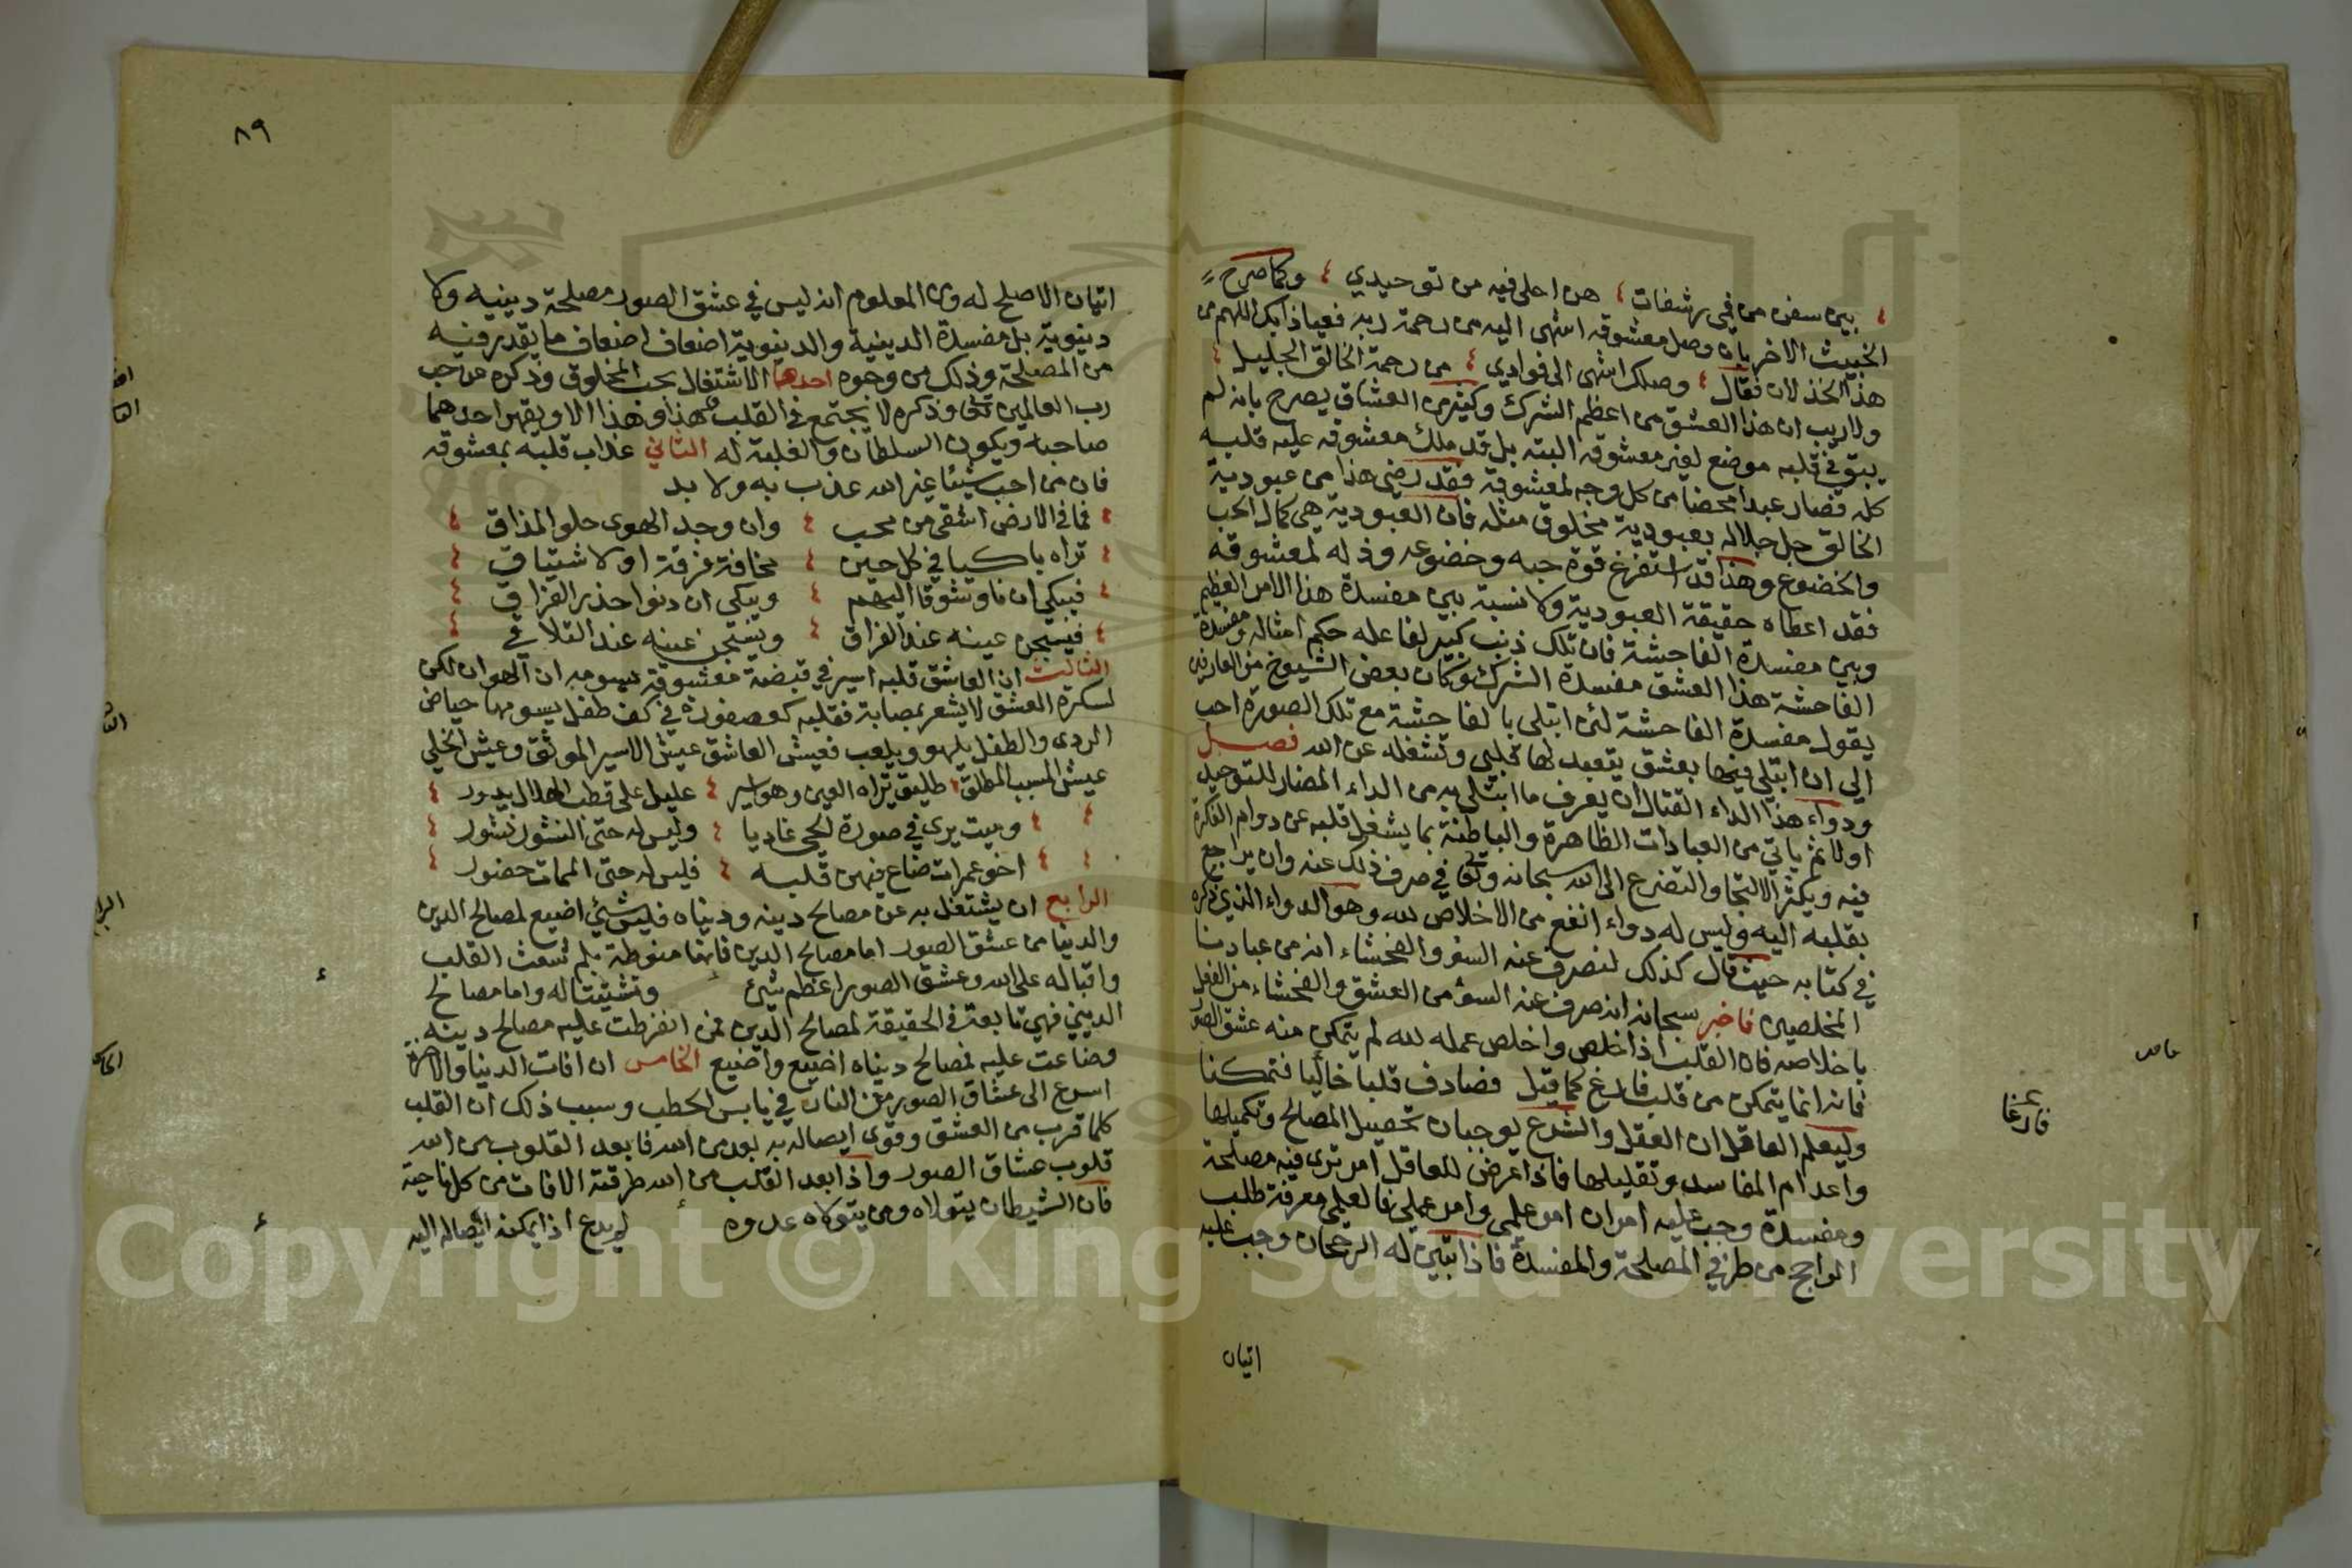 يترشفن من في رشفات هن احلى فيه من توحيدي وكما صرح
الخبيث الاخر بان وصل معشوقه اشهى اليه من رحمة ربه فعياذا بك اللهم من
هذا الخذلان فقال وصلك اشهى الى فوادي من رحمة الخالق الجليل
ولا ريب ان هذا العشق من اعظم الشرك وكثير من العشاق يصرح بانه لم
يبق في قلبه موضع لغير معشوقه البته بل قد ملك معشوقه عليه قلبه
كله فصار عبدا محضا من كل وجه لمعشوقة فقد رضي هذا من عبودية
الخالق جل جلاله بعبودية مخلوق مثله فان العبودية هي كمال الحب
والخضوع وهذا قد استفرغ قوة حبه وخضوعه وذله لمعشوقه
فقد اعطاه حقيقة العبودية ولا نسبة بين مفسدة هذا الامر العظيم
وبين مفسدة الفاحشة فان تلك ذنب كبير لفاعله حكم امثاله ومفسدة
الفاحشة هذا العشق مفسدة الشرك وكان بعض الشيوخ من العارفين
يقول مفسدة الفاحشة لئن ابتلى بالفاحشة مع تلك الصورة احب
الي ان ابتلى فيها بعشق يتعبد لها قلبي وتشغله عن الله فصل
ودواء هذا الداء القتال ان يعرف ما ابتلى به من الداء المضار للتوحيد
اولا ثم ياتي من العبادات الظاهرة والباطنة بما يشغل قلبه عن دوام الفكرة
فيه ويكثر الالتجا والتضرع الى الله سبحانه وتعالى في صرف ذلك عنه وان يراجع
بقلبه اليه وليس له دواء انفع من الاخلاص لله وهو الدواء الذي ذكره
في كتابه حيث قال كذلك لنصرف عنه السوء والفحشاء انه من عبادنا
المخلصين فاخبر سبحانه انه صرف عنه السوء من العشق والفحشاء من الفعل
باخلاصه فان القلب اذا خلص واخلص عمله لله لم يتمكن منه عشق الصور
فانه انما يتمكن من قلب فارغ كما قيل فصادف قلبا خاليا فتمكنا
وليعلم العاقل ان العقل والشرع يوجبان تحصيل المصالح وتكميلها
واعدام المفاسد وتقليلها فاذا عرض للعاقل امر ترى فيه مصلحة
ومفسدة وجب عليه امران امر علمي وامر عملي فالعلمي معرفة طلب
الراجح من طرفي المصلحة والمفسدة فاذا تبين له الرجحان وجب عليه
اتيان
فارغا
٨٩
اتيان الاصلح له ومن المعلوم انه ليس في عشق الصور مصلحة دينيه ولا
دنيوية بل مفسدة الدينية والدنيوية اضعاف اضعاف ما يقدر فيه
من المصلحة وذلك من وجوه احدها الاشتغال بحب المخلوق وذكره عن حب
رب العالمين تعالى وذكره لا يجتمع في القلب هذا وهذا الا ويقهر احدهما
صاحبه ويكون السلطان والغلبة له الثاني عذاب قلبه بمعشوقه
فان من احب شيئا غير الله عذب به ولا بد
فما في الارض اشقى من محب وان وجد الهوى حلو المذاق
تراه باكيا في كل حين مخافة فرقة او لاشتياق
فيبكي ان ناو شوقا اليهم ويبكي ان دنوا حذر الفراق
فيسجن عينه عند الفراق ويسخن عينه عند التلاقي
الثالث ان العاشق قلبه اسير في قبضة معشوقه يسومه ان الهوان لكن
لسكرة العشق لا يشعر بمصابة فقلبه كعصفورة في كف طفل يسومها حياض
الردى والطفل يلهو ويلعب فعيش العاشق عيش الاسير الموثق وعيش الخلي
عيش المسيب المطلق طليق تراه العين وهو اسير عليل على قطب الهلاك يدور
وميت يرى في صورة الحي غاديا وليس له حتى النشور نشور
اخو غمرات ضاع فيهن قلبه فليس له حتى الممات حضور
الرابع ان يشتغل به عن مصالح دينه ودنياه فليس شيئ اضيع لمصالح الدين
والدنيا من عشق الصور اما مصالح الدين فانها منوطة بلم شعث القلب
واقباله على الله وعشق الصور اعظم شيئ وتشتيتا له واما مصالح
الديني فهي تابعة في الحقيقة لمصالح الدين فمن انفرطت عليه مصالح دينه
وضاعت عليه فمصالح دنياه اضيع واضيع الخامس ان افات الدنيا والاخرة
اسرع الى عشاق الصور من النار في يابس الحطب وسبب ذلك ان القلب
كلما قرب من العشق وقوى ايصاله به بعد من الله فابعد القلوب من الله
قلوب عشاق الصور واذا ابعد القلب من الله طرقته الافات من كل ناحية
فان الشيطان يتولاه ومن يتولاه عدوه لم يدع اذا يمكنه ايصاله اليه